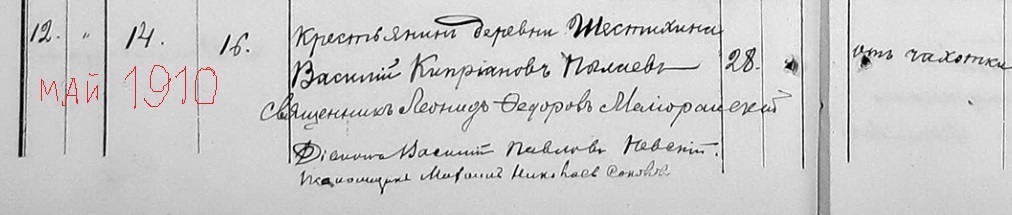 12. " 14. 16. Крестьянинъ деревни Шестихина
Василій Кипріановъ Пылаевъ 28. отъ чахотки
май 1910
Священникъ Леонидъ Ѳедоровъ Меліоранскій
Діаконъ Василій Павловъ Невскій.
Псаломщикъ Михаилъ Николаев